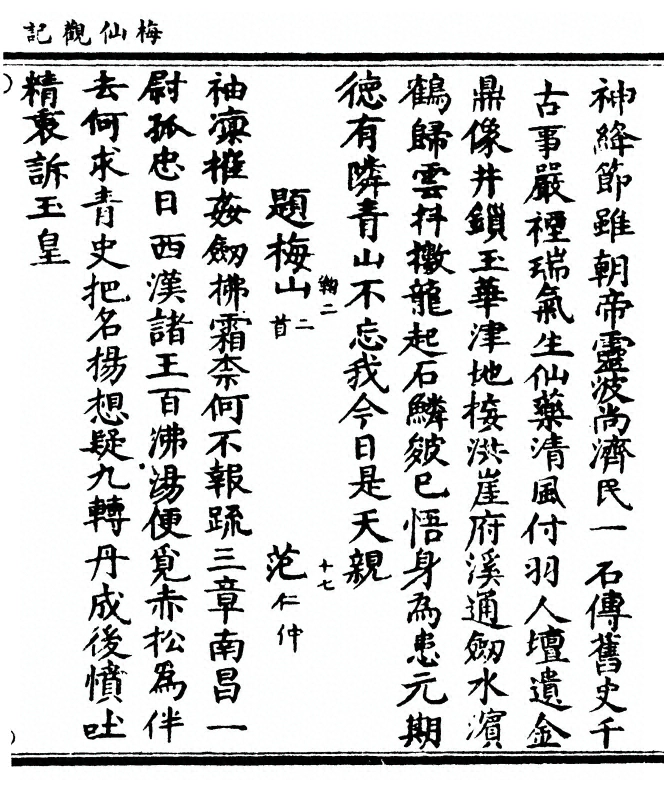 梅仙觀記
神絳節雖朝帝靈波尚濟民一石傳舊史千
古事嚴禋瑞氣生仙藥清風付羽人壇遺金
鼎像井鎖玉華津地接洪崖府溪通劔水濱
鶴歸雲抖擻龍起石鱗皴已悟身為患元期
德有隣青山不忘我今日是天親
題梅山二首 范仁仲
袖凜摧姦劔拂霜柰何不報䟽三章南昌一
尉孤忠日西漢諸王百沸湯便覓赤松為伴
去何求青史把名揚想疑九轉丹成後憤吐
精衷訴玉皇
十七